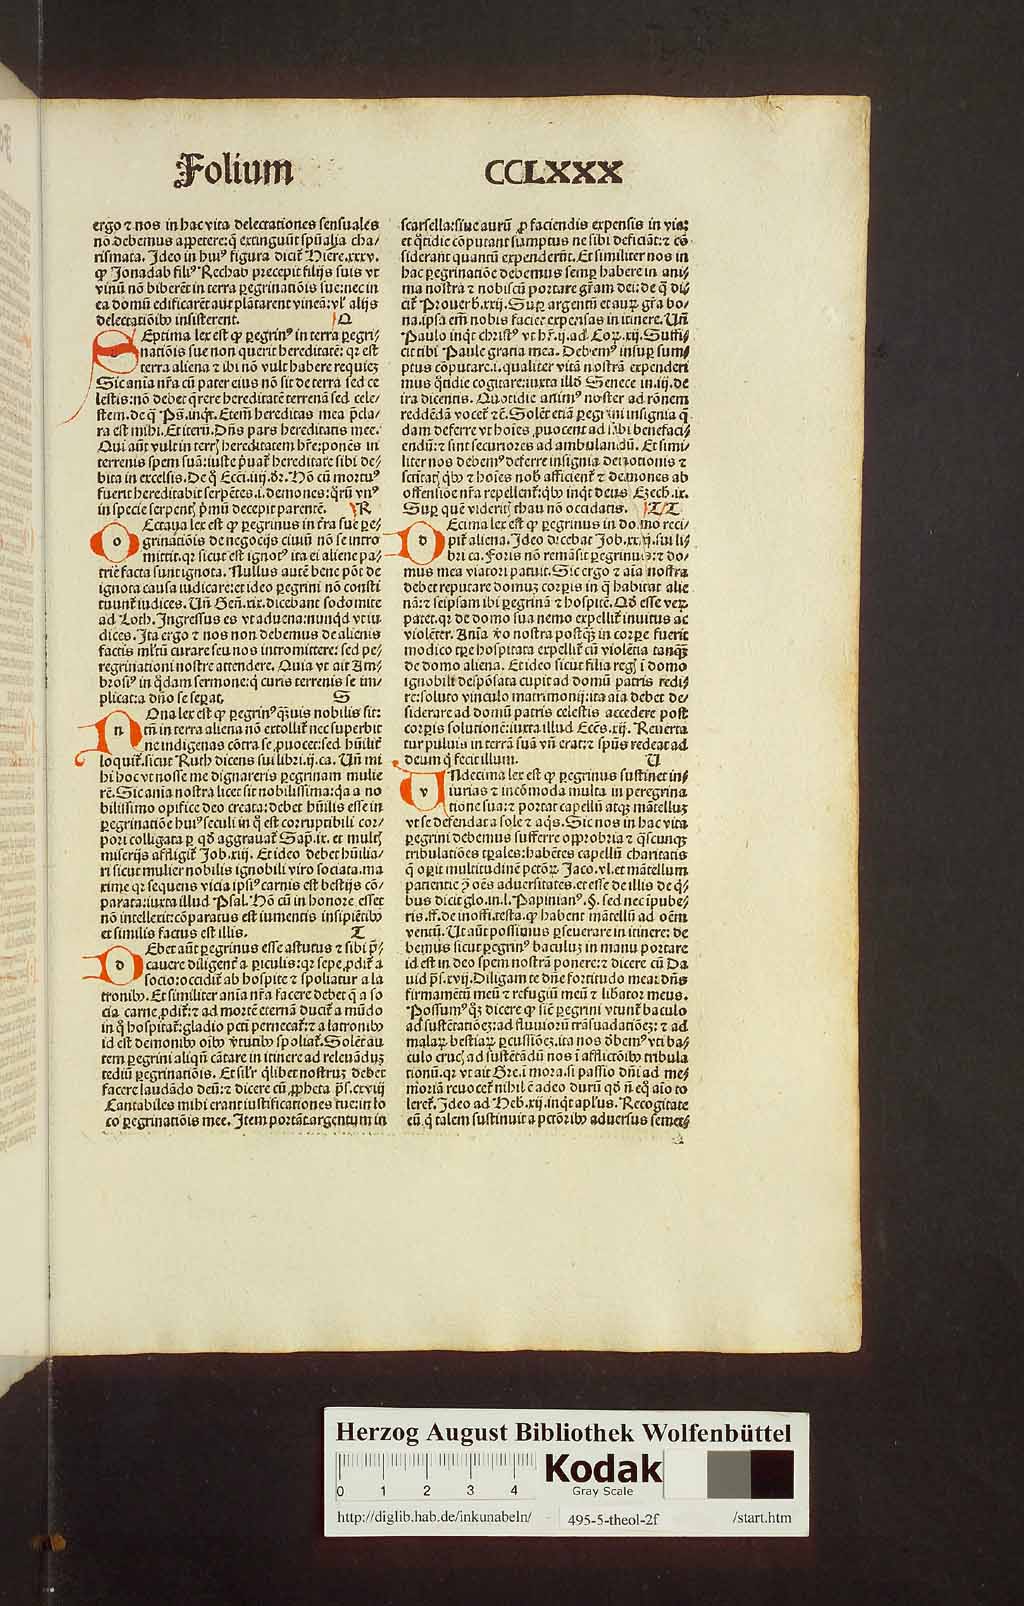 Folium CCLXXX
ergo ⁊ nos in hac vita delectationes sensuales
nō debemus appetere: q̄ extinguūt spūalia cha-
rismata. Ideo in huiꝰ figura dicit̄ Hiere.xxxv.
ꝙ Jonadab filiꝰ Rechab precepit filijs suis vt
vinū nō biberēt in terra peregrinatiōis sue: nec in
ea domū edificarēt aut plātarent vineā: vl' alijs
delectatiōibꝰ insisterent. Q
SEptima lex est ꝙ pegrinꝰ in terra pegri-
natiōis sue non querit hereditatē: qr est
terra aliena ⁊ ibi nō vult habere requiēꝫ
Sic anīa nr̄a cū pater eius nō sit de terra sed ce
lestis: nō debet q̄rere hereditatē terrenā sed cele-
stem. de q̄ Ps. inqt. Etem̄ hereditas mea p̄cla-
ra est mihi. Et iterū. Dn̄s pars hereditatis mee.
Qui aūt vult in terrꝭ hereditatem hr̄e: ponēs in
terrenis spem suā: iuste p̄uat̄ hereditate sibi de-
bita in excelsis. De q̄ Ecci.iiij. dr̄. Hō cū mortuꝰ
fuerit hereditabit serpētes .i. demones: q̄rū vnꝰ
in specie serpentꝭ p̄mū decepit parentē. R
OCtaua lex est ꝙ pegrinus in tr̄a sue pe-
grinatiōis de negocijs ciuiū nō se intro
mittit. qr sicut est ignotꝰ ita ei aliene pa-
trie facta sunt ignota. Nullus autē bene pōt de
ignota causa iudicare: et ideo peregrini nō consti
tuunt̄ iudices. Un̄ Gen̄.xix. dicebant sodomite
ad Loth. Ingressus es vt aduena: nunqd vt iu
dices. Ita ergo ⁊ nos non debemus de alienis
factis ml̄tū curare seu nos intromittere: sed pe-
regrinationi nostre attendere. Quia vt ait Am-
brosiꝰ in q̄dam sermone: q̄ curis terrenis se im-
plicat: a dn̄o se sepat. S
NOna lex est ꝙ pegrinꝰ q̄ꝫuis nobilis sit:
tn̄ in terra aliena nō extollit̄ nec superbit
ne indigenas cōtra se ꝓuocet: sed hūilit̄
loquit̄. sicut Ruth dicens sui libri.ij.ca. Un̄ mi
hi hoc vt nosse me dignareris pegrinam mulie
rē. Sic anīa nostra licet sit nobilissima: q̄a a no
bilissimo opifice deo creata: debet hūilis esse in
pegrinatiōe huiꝰ seculi in q̄ est corruptibili cor-
pori colligata p qd̄ aggrauat̄ Sap̄.ix. et multꝭ
miserijs affligit̄ Job.xiij. Et ideo debet hūilia-
ri sicut mulier nobilis ignobili viro sociata. ma
xime qr sequens vicia ipsiꝰ carnis est bestijs cō-
parata: iuxta illud Psal. Hō cū in honore esset
nō intellexit: cōparatus est iumentis insipiētibꝰ
et similis factus est illis. T
DEbet aūt pegrinus esse astutus ⁊ sibi p̄-
cauere diligent̄ a piculis: qr sepe ꝓdit̄ a
socio: occidit̄ ab hospite ⁊ spoliatur a la
tronibꝰ. Et similiter anīa nr̄a facere debet q̄ a so
cia carne ꝓdit̄: ⁊ ad mortē eternā ducit̄ a mūdo
in q̄ hospitat̄: gladio pctī pernecat̄: ⁊ a latronibꝰ
id est demonibꝰ oībꝰ v̄tutibꝰ spoliat̄. Solēt au
tem pegrini aliqn̄ cātare in itinere ad releuāduꝫ
tediū pegrinatiōis. Et sil'r qlibet nostruꝫ debet
facere laudādo deū: ⁊ dicere cū ꝓpheta ps̄.cxviij
Cantabiles mihi erant iustificationes tue: in lo
co pegrinatiōis mee. Item portāt argentum in
scarsella: siue aurū ꝓ faciendis expensis in via:
et q̄tidie cōputant sumptus ne sibi deficiāt: ⁊ cō
siderant quantū expenderūt. Et similiter nos in
hac pegrinatiōe debemus semp habere in ani-
ma nostra ⁊ nobiscū portare gr̄am dei: de q̄ di-
cit̄ Prouerb.xxij. Sup argentū et aur. gr̄a bo-
na. ipsa em̄ nobis faciet expensas in itinere. Un̄
Paulo inqt christꝰ vt hr̄.ij.ad Cor.xij. Suffi-
cit tibi Paule gratia mea. Debemꝰ insup sum-
ptus cōputare .i. qualiter vitā nostrā expenderi
mus q̄tidie cogitare: iuxta illd̄ Senece in.iij.de
ira dicentis. Quotidie animꝰ noster ad rōnem
reddēdā vocet̄ ⁊c̄. Solēt etiā pegrini insignia q̄
dam deferre vt hoīes ꝓuocent ad sibi benefaci-
endū: ⁊ sint securiores ad ambulandū. Et simi-
liter nos debemꝰ deferre insignia deuotionis ⁊
sc̄titatꝭ qbꝰ ⁊ hoīes nob̄ afficient̄ ⁊ demones ab
offensiōe nr̄a repellent̄: qbꝰ inqt deus Ezech.ix.
Sup quē videritꝭ thau nō occidatis. T T
DEcima lex est ꝙ pegrinus in domo reci-
pit̄ aliena. Ideo dicebat Job.xxxj.sui li-
bri ca. Foris nō remāsit pegrinus: ⁊ do-
mus mea viatori patuit. Sic ergo ⁊ aīa nostra
debet reputare domuꝫ corpis in q̄ habitat alie
nā: ⁊ seipsam ibi pegrinā ⁊ hospitē. Qd̄ esse ver
patet. qr de domo sua nemo expellit̄ inuitus ac
violēter. Anīa v̄o nostra postq̄ꝫ in corpe fuerit
modico tpe hospitata expellit̄ cū violētia tanq̄ꝫ
de domo aliena. Et ideo sicut filia regꝭ ī domo
ignobili despōsata cupit ad domū patris redi-
re: soluto vinculo matrimonij: ita aīa debet de-
siderare ad domū patris celestis accedere post
corpis solutionē: iuxta illud Eccēs.xij. Reuerta
tur puluis in terrā suā vn̄ erat: ⁊ spūs redeat ad
deum q̄ fecit illum. U
UNdecima lex est ꝙ pegrinus sustinet in-
iurias ⁊ incōmoda multa in peregrina
tione sua: ⁊ portat capellū atqꝫ mātelluꝫ
vt se defendat a sole ⁊ aqs. Sic nos in hac vita
pegrini debemus sufferre opprobria ⁊ q̄scunqꝫ
tribulatiōes tpales: habētes capellū charitatis
q̄ opit multitudinē pctōr. Jaco.vl. et mātellum
patientie ꝯ oēs aduersitates. et esse de illis de q̄-
bus dicit glo.in.l. Papinianꝰ.§. sed nec ipube-
ris.ff. de inoffi.testa. ꝙ habent mātellū ad oēm
ventū. Ut aūt possimus pseuerare in itinere: de
bemus sicut pegrinꝰ baculuꝫ in manu portare
id est in deo spem nostrā ponere: ⁊ dicere cū Da
uid ps̄.xvij. Diligam te dn̄e fortitudo mea: dn̄s
firmamētū meū ⁊ refugiū meū ⁊ libator meus.
Possumꝰ qꝫ dicere ꝙ sic̄ pegrini vtunt̄ baculo
ad sustētatiōeꝫ: ad fluuiorū trāsuadatiōeꝫ: ⁊ ad
malar bestiar pcussiōeꝫ. ita nos dbemꝰ vti ba-
culo crucꝭ ad sustētādū nos ī afflictōibꝰ tribula
tionū. qr vt ait Gre. ī mora. si passio dn̄i ad me-
moriā reuocet̄ nihil ē adeo durū qd̄ n̄ eq̄ aīo to
leret̄. Ideo ad Heb.xij. inqt apl'us. Recogitate
eū q̄ talem sustinuit a pctōribꝰ aduersus semet-
Herzog August Bibliothek Wolfenbüttel
0 1 2 3 4
Kodak
Gray Scale
http://diglib.hab.de/inkunabeln/ - 495-5-theol-2f /start.htm